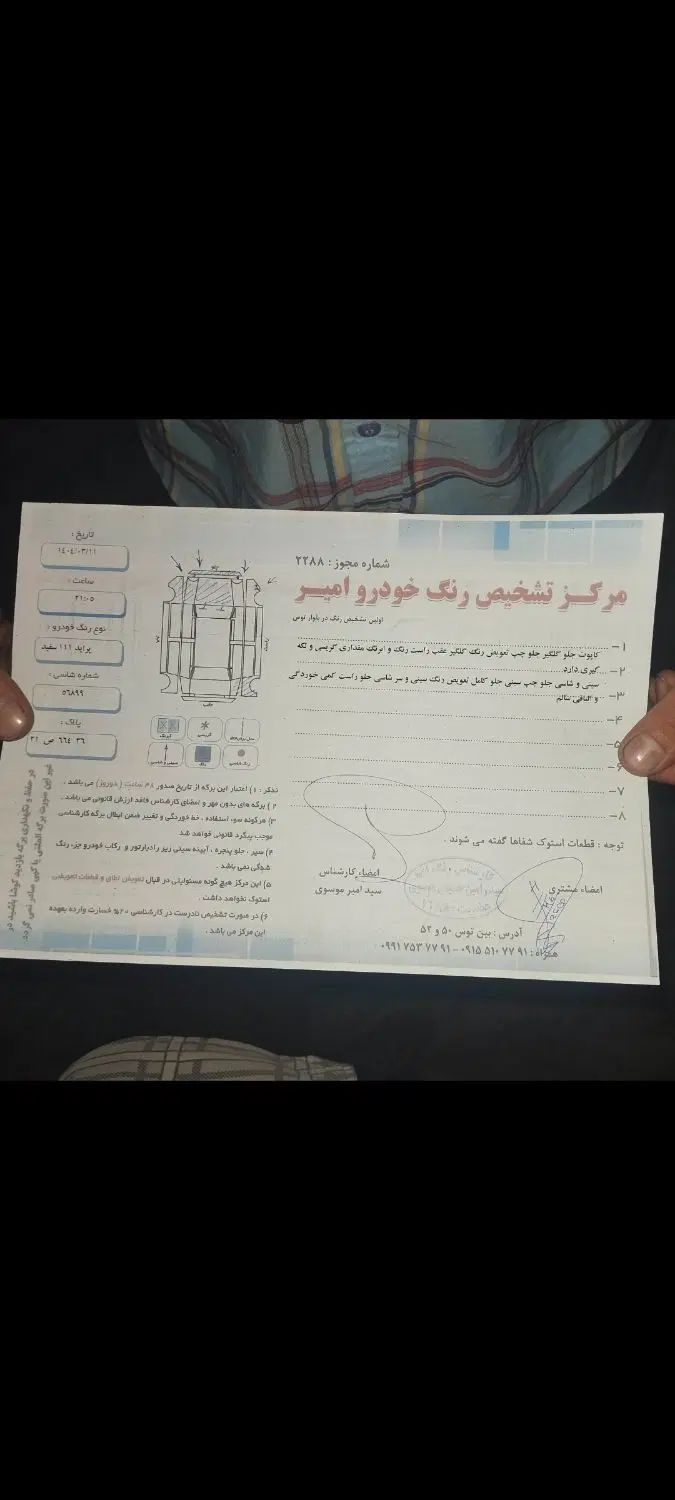 شماره مجوز : ۲۲۸۸
مرکز تشخیص رنگ خودرو امیر
اولین تشخیص رنگ در بلوار توس
تاریخ :
۱۴۰۴/۰۳/۱۱
ساعت :
۲۱:۰۵
نوع رنگ خودرو :
پراید ۱۱۱ سفید
شماره شاسی :
۵۶۸۹۹
پلاک :
۳۶ ۶۶۴ ص ۳۱
۱- کاپوت جلو گلگیر جلو چپ تعویض رنگ گلگیر عقب راست رنگ و ابرنگ مقداری گریسی و لکه
۲- گیری دارد
سینی و شاسی جلو چپ سینی جلو کامل تعویض رنگ سینی و سر شاسی جلو راست کمی خوردگی
۳- و الباقی سالم
۴-
۵-
۶-
۷-
۸-
توجه : قطعات استوک شفاها گفته می شوند .
امضاء مشتری
امضاء کارشناس
سید امیر موسوی
آدرس : بین توس ۵۰ و ۵۲
همراه : ۰۹۱۵ ۵۱۰ ۷۷ ۹۱ – ۰۹۹۱ ۷۵۳ ۷۷ ۹۱
عقب
رنگ
تذکر : ۱) اعتبار این برگه از تاریخ صدور ۴۸ ساعت (دو روز) می باشد .
۲) برگه های بدون مهر و امضای کارشناس فاقد ارزش قانونی می باشد .
۳) هرگونه سوء استفاده ، خط خوردگی و تغییر ضمن ابطال برگه کارشناسی
موجب پیگرد قانونی خواهد شد
۴) سپر ، جلو پنجره ، آیینه سینی زیر رادیاتور و رکاب خودرو جزء رنگ
شدگی نمی باشد .
۵) این مرکز هیچ گونه مسئولیتی در قبال تعویض اطاق و قطعات تعویضی
استوک نخواهد داشت .
۶) در صورت تشخیص نادرست در کارشناسی ۲۰% خسارت وارده بعهده
این مرکز می باشد .
در حفظ و نگهداری برگه بازدید کوشا باشید در
غیر این صورت برگه المثنی یا کپی صادر نمی گردد